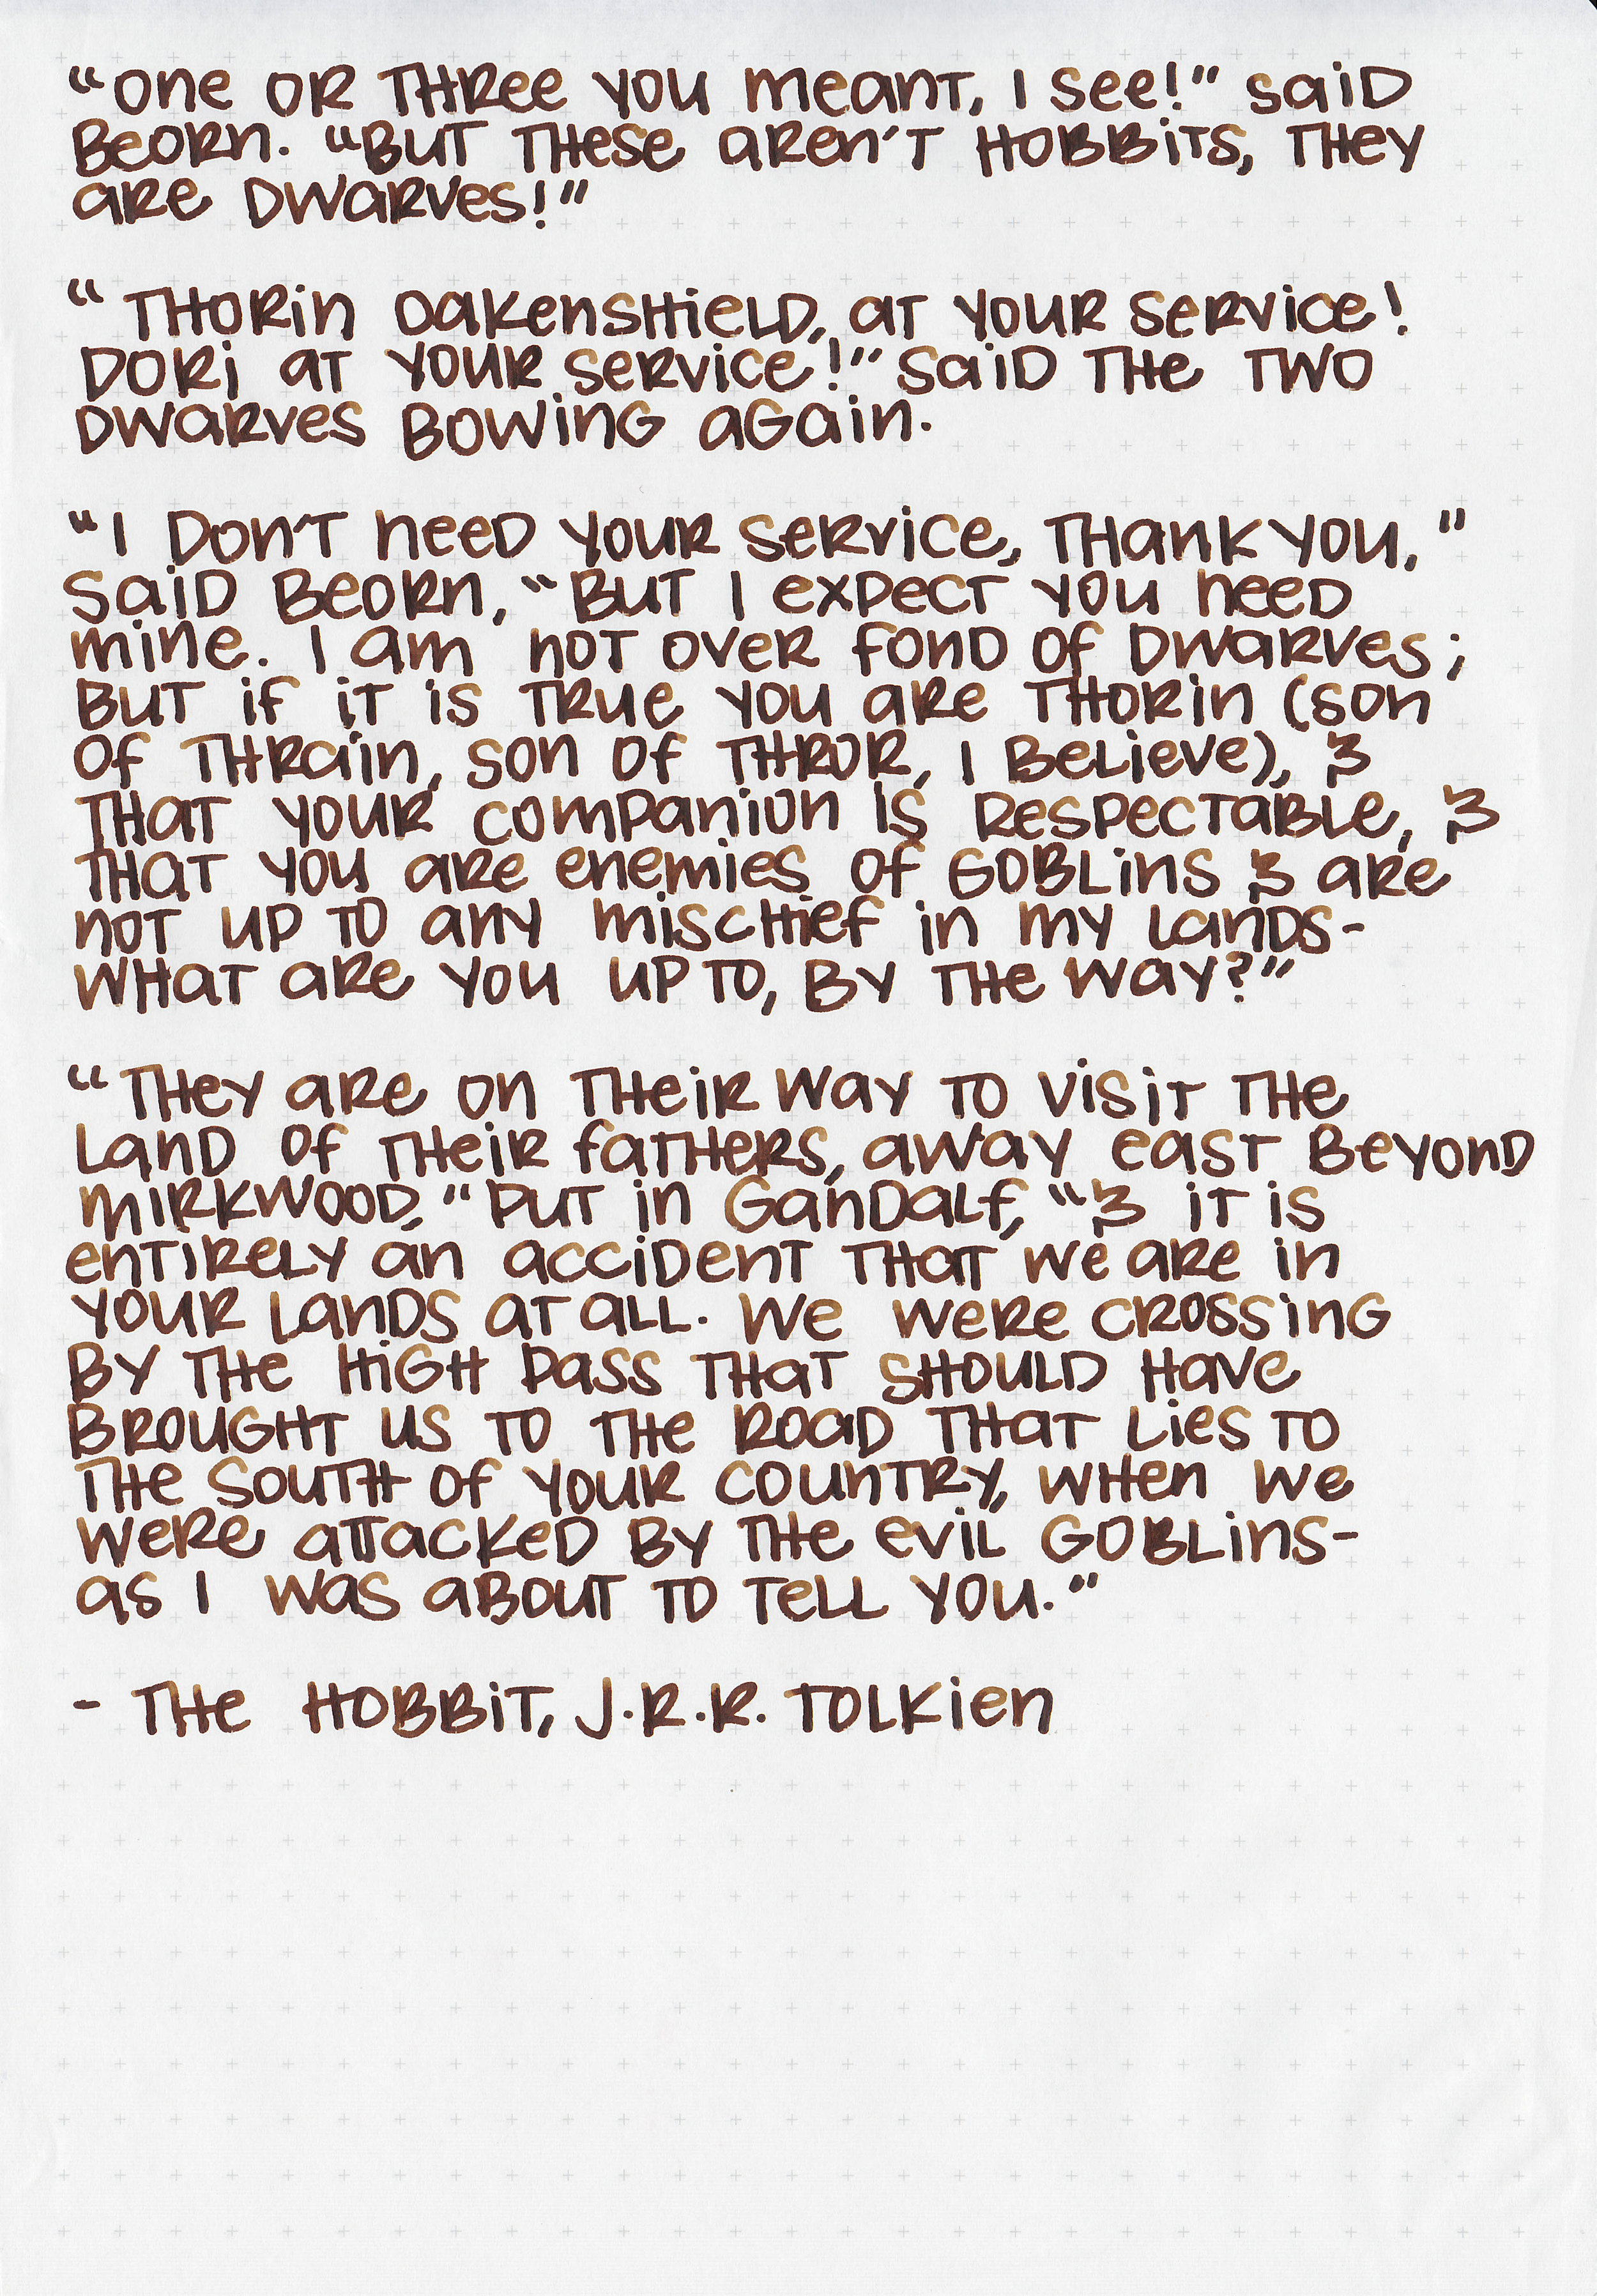 "One or three you meant, I see!" said
Beorn. "But these aren't hobbits, they
are dwarves!"
"Thorin Oakenshield, at your service!
Dori at your service!" said the two
dwarves bowing again.
"I don't need your service, thank you,"
said Beorn, "But I expect you need
mine. I am not over fond of dwarves;
but if it is true you are Thorin (son
of Thrain, son of Thror, I believe), &
that your companion is respectable, &
that you are enemies of goblins & are
not up to any mischief in my lands-
what are you up to, by the way?"
"They are on their way to visit the
land of their fathers, away east beyond
Mirkwood," put in Gandalf, "& it is
entirely an accident that we are in
your lands at all. We were crossing
by the High Pass that should have
brought us to the road that lies to
the south of your country, when we
were attacked by the evil goblins-
as I was about to tell you."
- The Hobbit, J.R.R. Tolkien